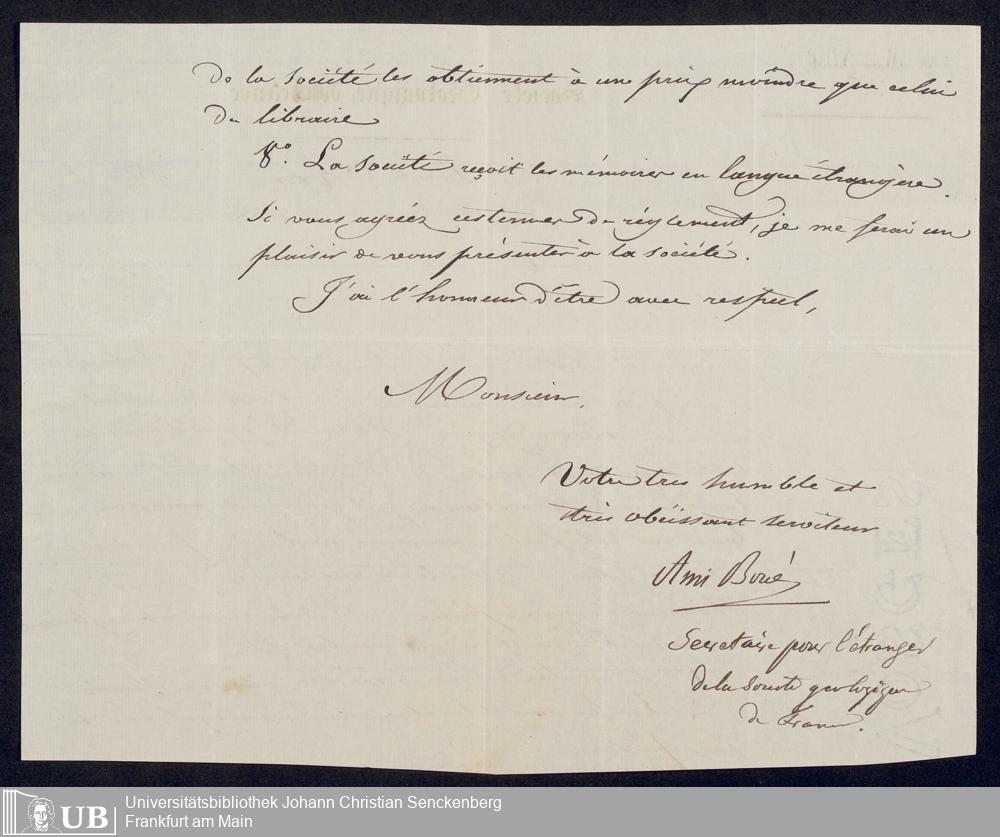 de la Société les obtiennent à un prix moindre que celui
du libraire
8.° La Société reçoit les mémoires en langue étrangère.
Si vous agréez ces termes de réglement, je me ferai un
plaisir de vous présenter à la société.
J'ai l'honneur d'être avec respect,
Monsieur,
Votre tres humble et
très obéissant serviteur
Ami Boué
Secretaire pour l'étranger
de la Société geologique
de France.
UB
Universitätsbibliothek Johann Christian Senckenberg
Frankfurt am Main